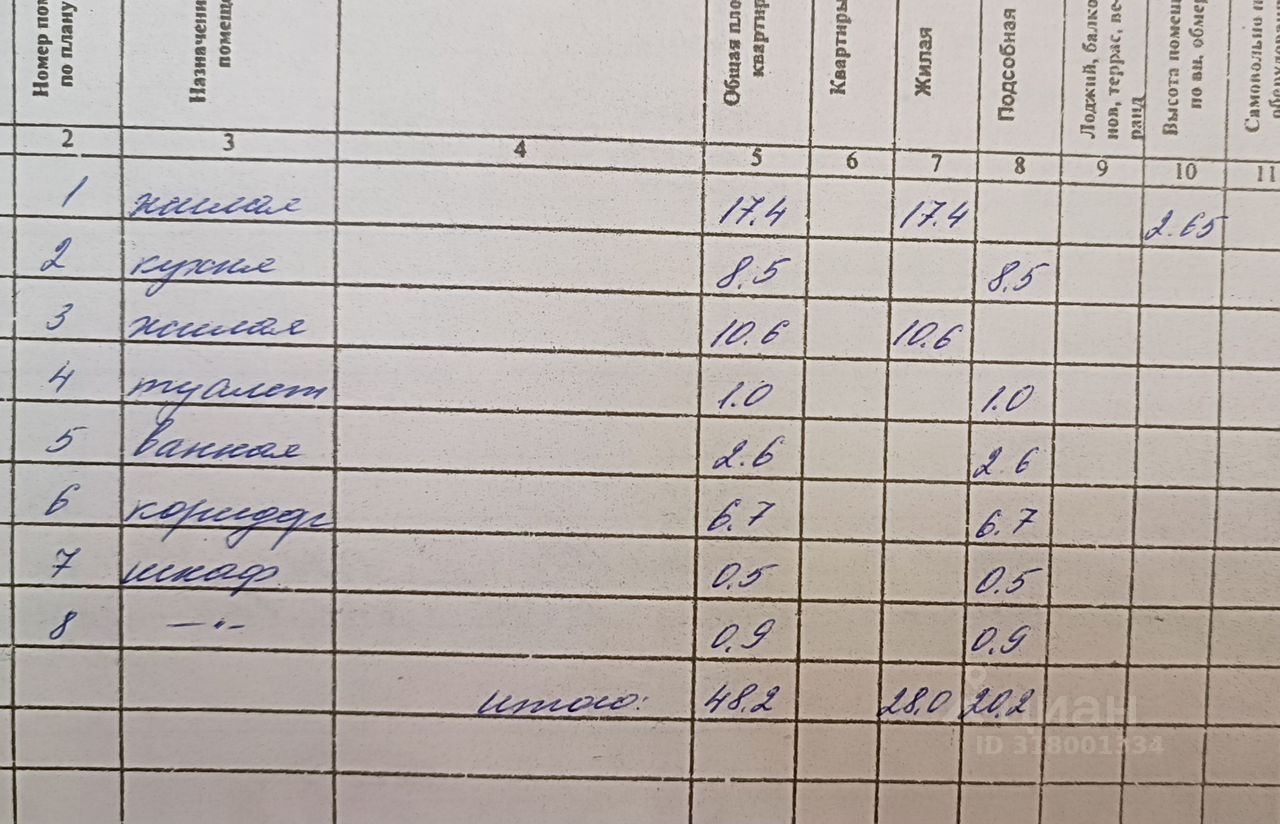 Номер пом
по плану
Назначени
помеще
Общая пло
квартир
Квартиры
Жилая
Подсобная
Лоджий, балко
нов, террас, ве-
ранд
Высота помещ
по вн. обмер
Самовольно п
2 3 4 5 6 7 8 9 10 11
1 жилая 17.4 17.4 2.65
2 кухня 8.5 8.5
3 жилая 10.6 10.6
4 туалет 1.0 1.0
5 ванная 2.6 2.6
6 коридор 6.7 6.7
7 шкаф 0.5 0.5
8 —"— 0.9 0.9
итого: 48.2 28.0 20.2
циан
ID 318001334